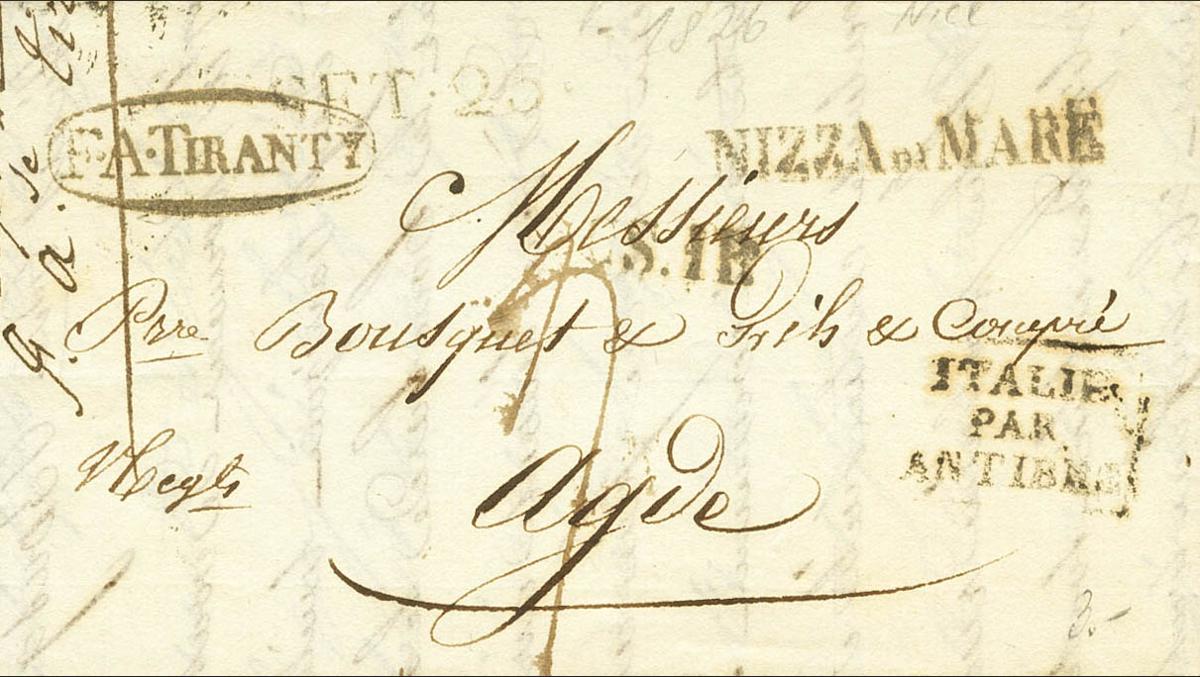 1826 Nice
SET. 25.
F. A. TIRANTY
NIZZA DI MARE
Messieurs
S. 1E
Pre Bousquet & Fils & Compié
ITALIE
PAR
ANTIBES
Negts
Agde